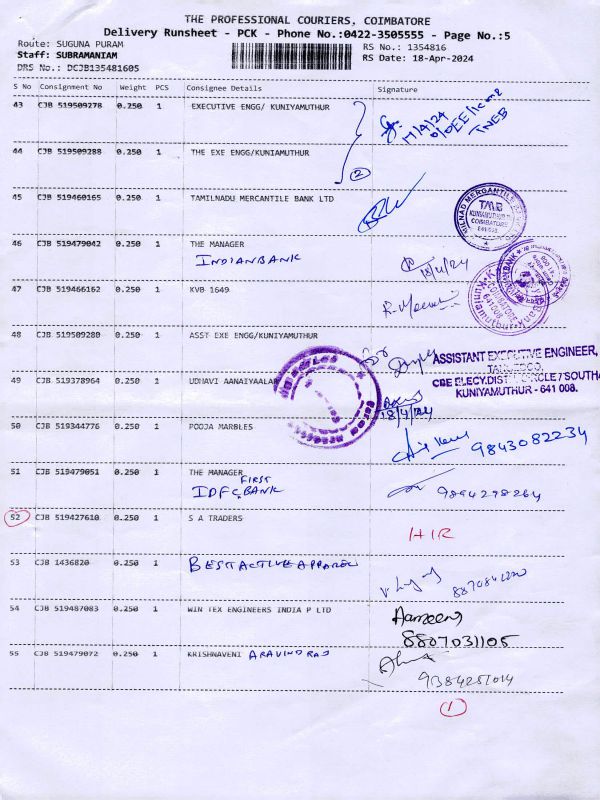 THE PROFESSIONAL COURIERS, COIMBATORE
Delivery Runsheet - PCK - Phone No.:0422-3505555 - Page No.:5
Route: SUGUNA PURAM
RS No.: 1354816
Staff: SUBRAMANIAM
RS Date: 18-Apr-2024
DRS No.: DCJB135481605
S No Consignment No Weight PCS Consignee Details Signature
43 CJB 519509278 0.250 1 EXECUTIVE ENGG/ KUNIYAMUTHUR
TNEB
44 CJB 519509288 0.250 1 THE EXE ENGG/KUNIAMUTHUR
2
45 CJB 519460165 0.250 1 TAMILNADU MERCANTILE BANK LTD
TMB
COIMBATORE
46 CJB 519479042 0.250 1 THE MANAGER
INDIANBANK
18/4/24
47 CJB 519466162 0.250 1 KVB 1649
48 CJB 519509280 0.250 1 ASST EXE ENGG/KUNIYAMUTHUR
ASSISTANT EXECUTIVE ENGINEER,
TANGEDCO,
CBE ELECY.DIST CIRCLE / SOUTH
KUNIYAMUTHUR - 641 008.
49 CJB 519378964 0.250 1 UDHAVI AANAIYAALAR
18/4/24
50 CJB 519344776 0.250 1 POOJA MARBLES
9843082234
51 CJB 519479051 0.250 1 THE MANAGER
IDFC FIRST BANK
9894298264
52 CJB 519427610 0.250 1 S A TRADERS
HIR
53 CJB 1436820 0.250 1 BEST ACTIVE APPAREL
54 CJB 519487083 0.250 1 WIN TEX ENGINEERS INDIA P LTD
8807031105
55 CJB 519479072 0.250 1 KRISHNAVENI ARAVINDRAJ
9384251014
1